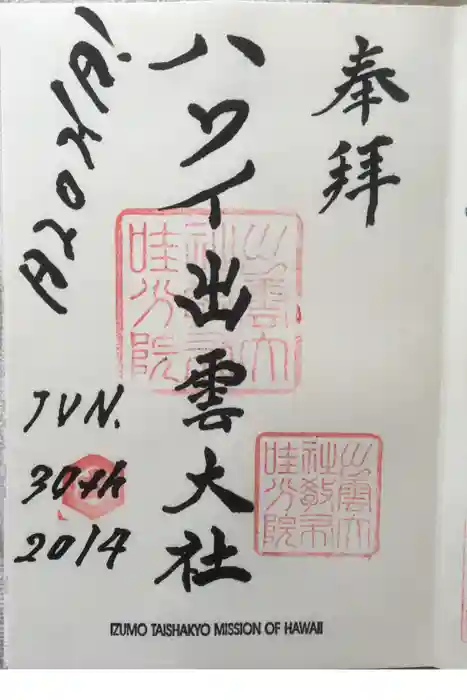 奉拝
ハワイ出雲大社
出雲大
社教布
哇分院
出雲大
社教布
哇分院
JUN.
30th
2014
IZUMO TAISHAKYO MISSION OF HAWAII